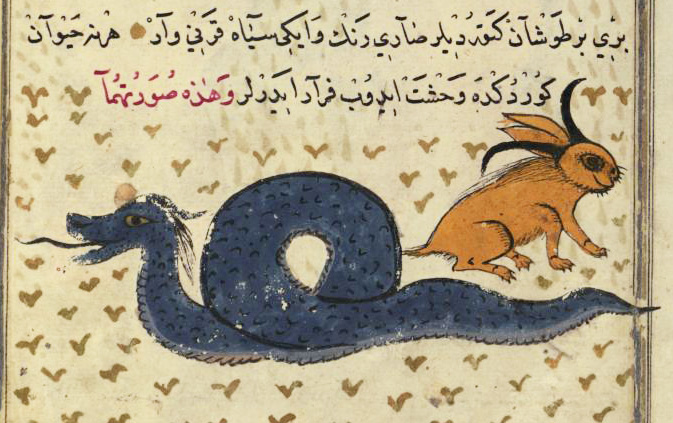 بري بر طوشآن كتورديلر صآري رنك وايكى سيآه قرني وآر هرنه حيوآن
كوردكده وحشت ايدوب فرآر ايدرلر وهذه صورتهمآ